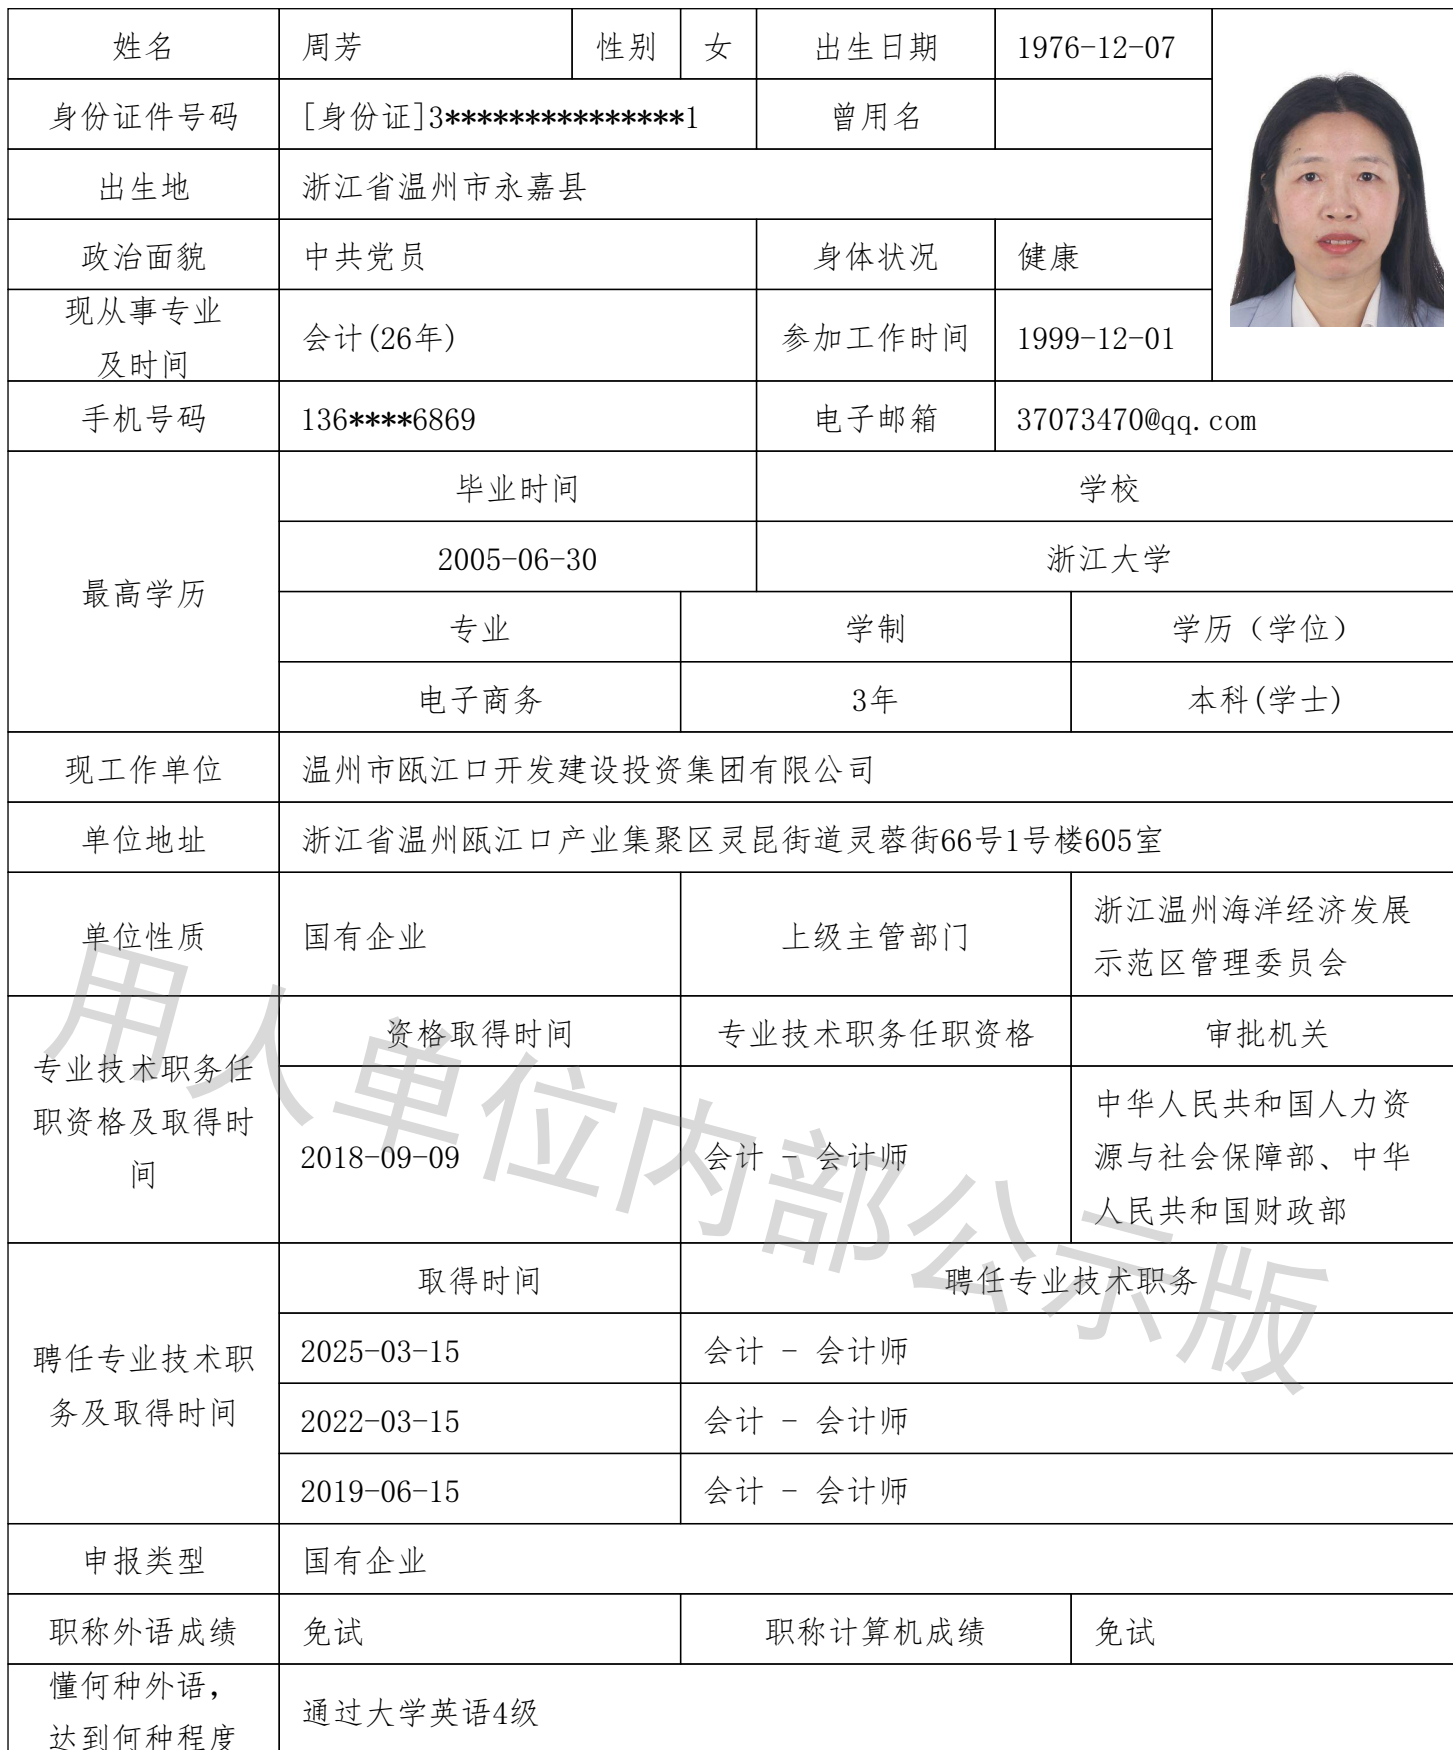 姓名 周芳 性别 女 出生日期 1976-12-07
身份证件号码 [身份证]3***************1 曾用名
出生地 浙江省温州市永嘉县
政治面貌 中共党员 身体状况 健康
现从事专业
及时间
会计(26年) 参加工作时间 1999-12-01
手机号码 136****6869 电子邮箱 37073470@qq.com
最高学历
毕业时间 学校
2005-06-30 浙江大学
专业 学制 学历（学位）
电子商务 3年 本科(学士)
现工作单位 温州市瓯江口开发建设投资集团有限公司
单位地址 浙江省温州瓯江口产业集聚区灵昆街道灵蓉街66号1号楼605室
单位性质 国有企业 上级主管部门
浙江温州海洋经济发展
示范区管理委员会
专业技术职务任
职资格及取得时
间
资格取得时间 专业技术职务任职资格 审批机关
2018-09-09 会计 - 会计师
中华人民共和国人力资
源与社会保障部、中华
人民共和国财政部
聘任专业技术职
务及取得时间
取得时间 聘任专业技术职务
2025-03-15 会计 - 会计师
2022-03-15 会计 - 会计师
2019-06-15 会计 - 会计师
申报类型 国有企业
职称外语成绩 免试 职称计算机成绩 免试
懂何种外语，
达到何种程度
通过大学英语4级
用人单位内部公示版